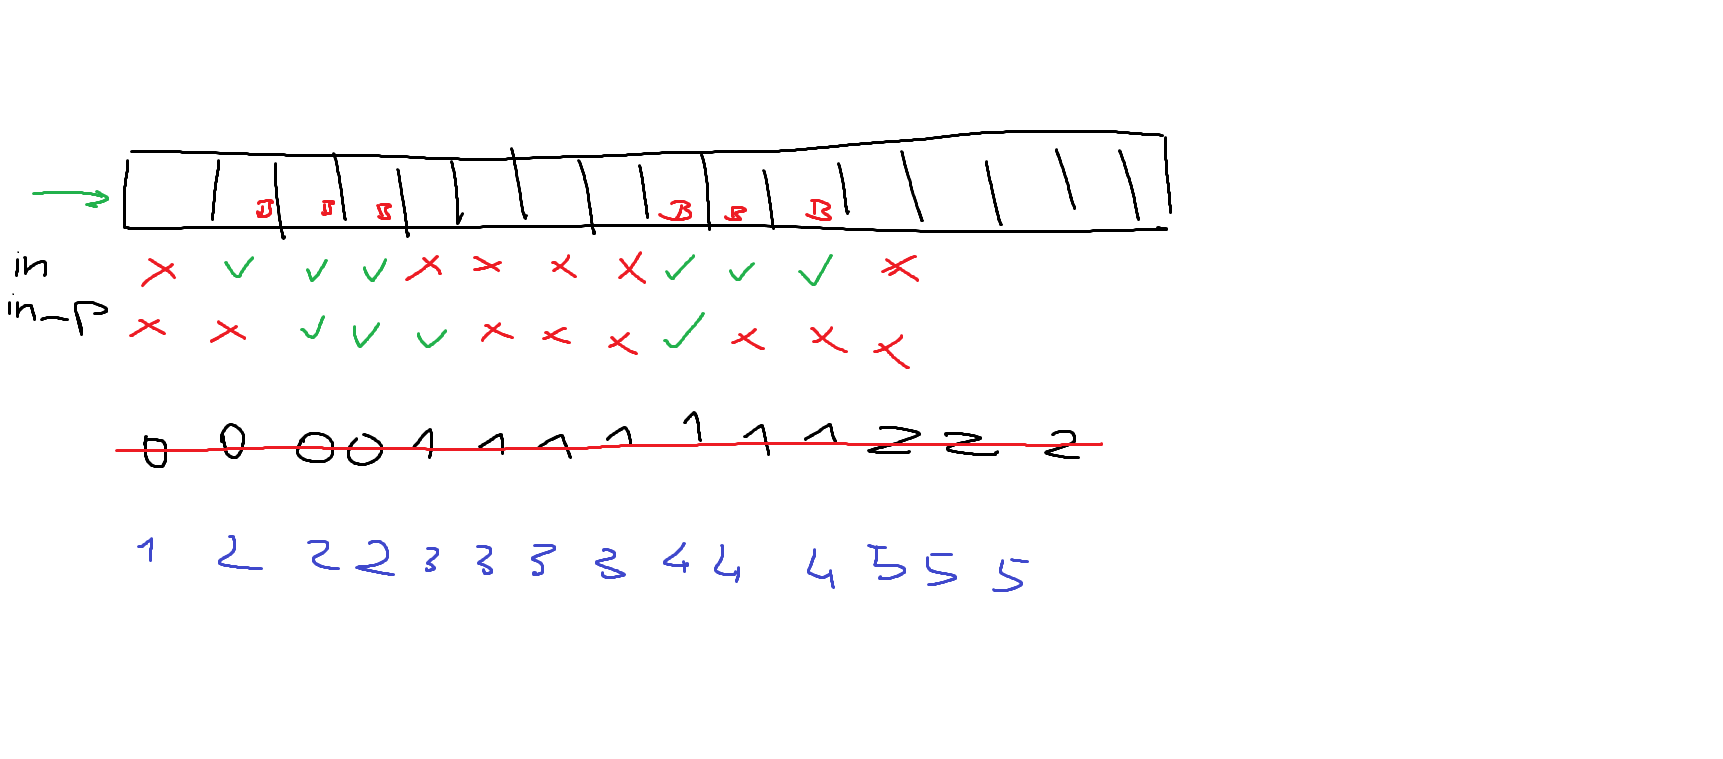 B B B B B B
in
in_p
0 0 0 0 1 1 1 1 1 1 1 2 2 2
1 2 2 2 3 3 3 3 4 4 4 5 5 5